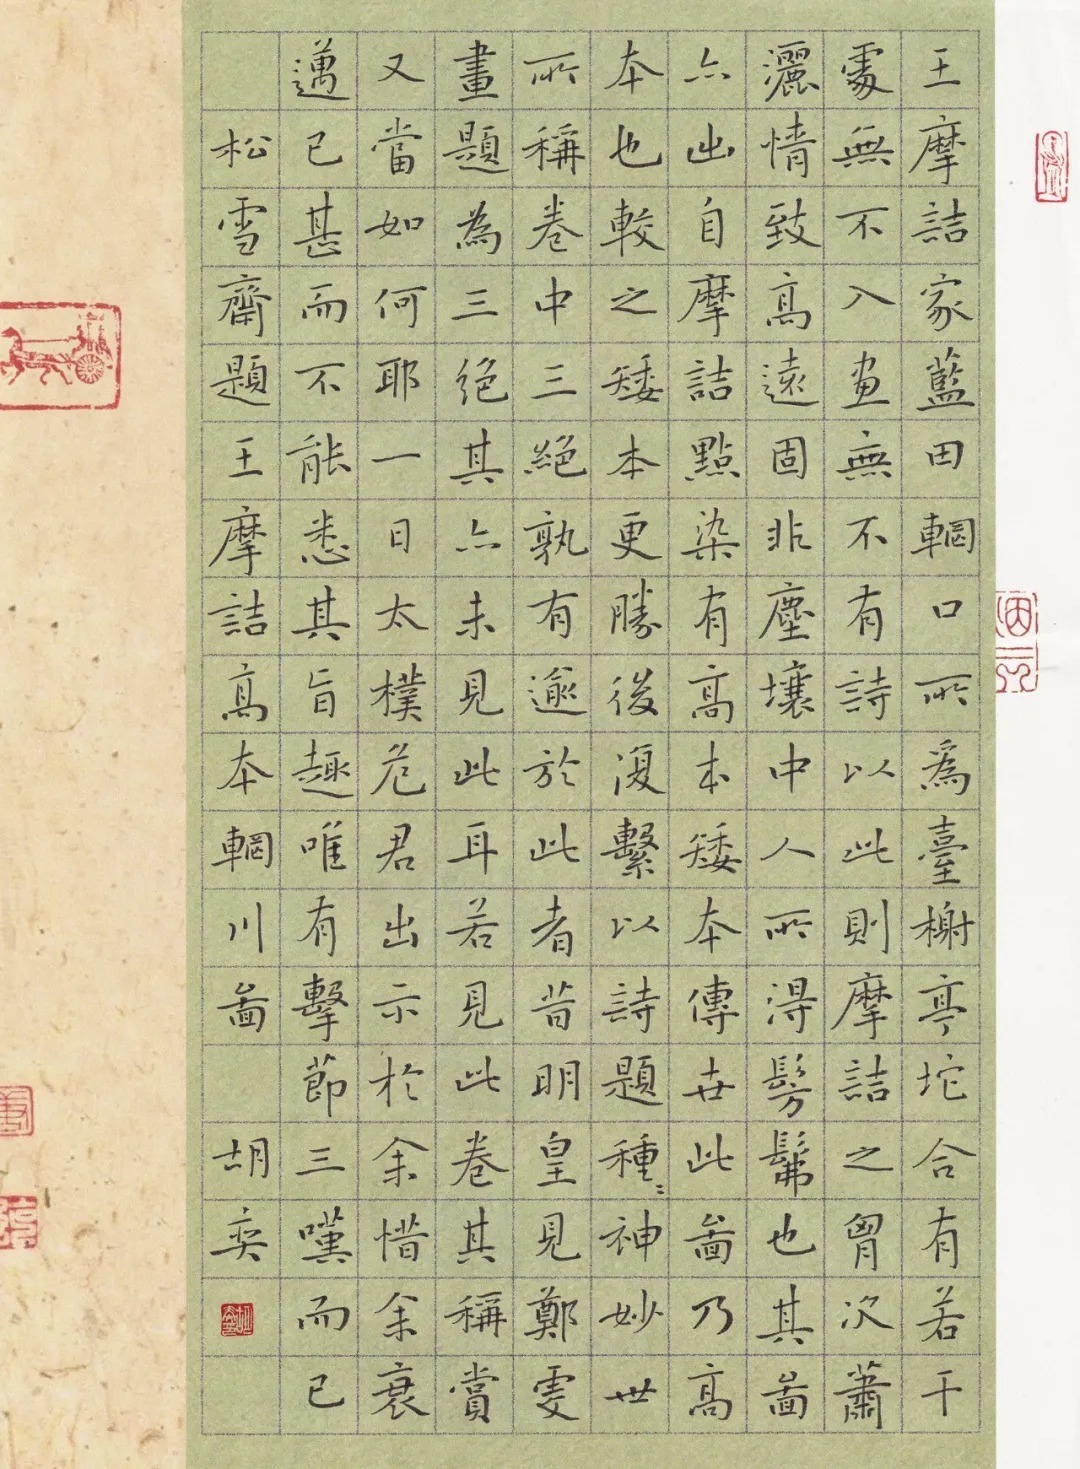 王摩詰家藍田輞口所為臺榭亭坨合有若干
處無不入畫無不有詩以此則摩詰之胷次蕭
灑情致高遠固非塵壤中人所得髣髴也其啚
亦出自摩詰點染有高本矮本傳世此啚乃高
本也較之矮本更勝後復繫以詩題種〻神妙世
所稱卷中三絕孰有逾於此者昔明皇見鄭雯
畫題為三絕其亦未見此耳若見此卷其稱賞
又當如何耶一日太樸危君出示於余惜余衰
邁已甚而不能悉其旨趣唯有擊節三嘆而已
松雪齋題王摩詰高本輞川啚 胡奕